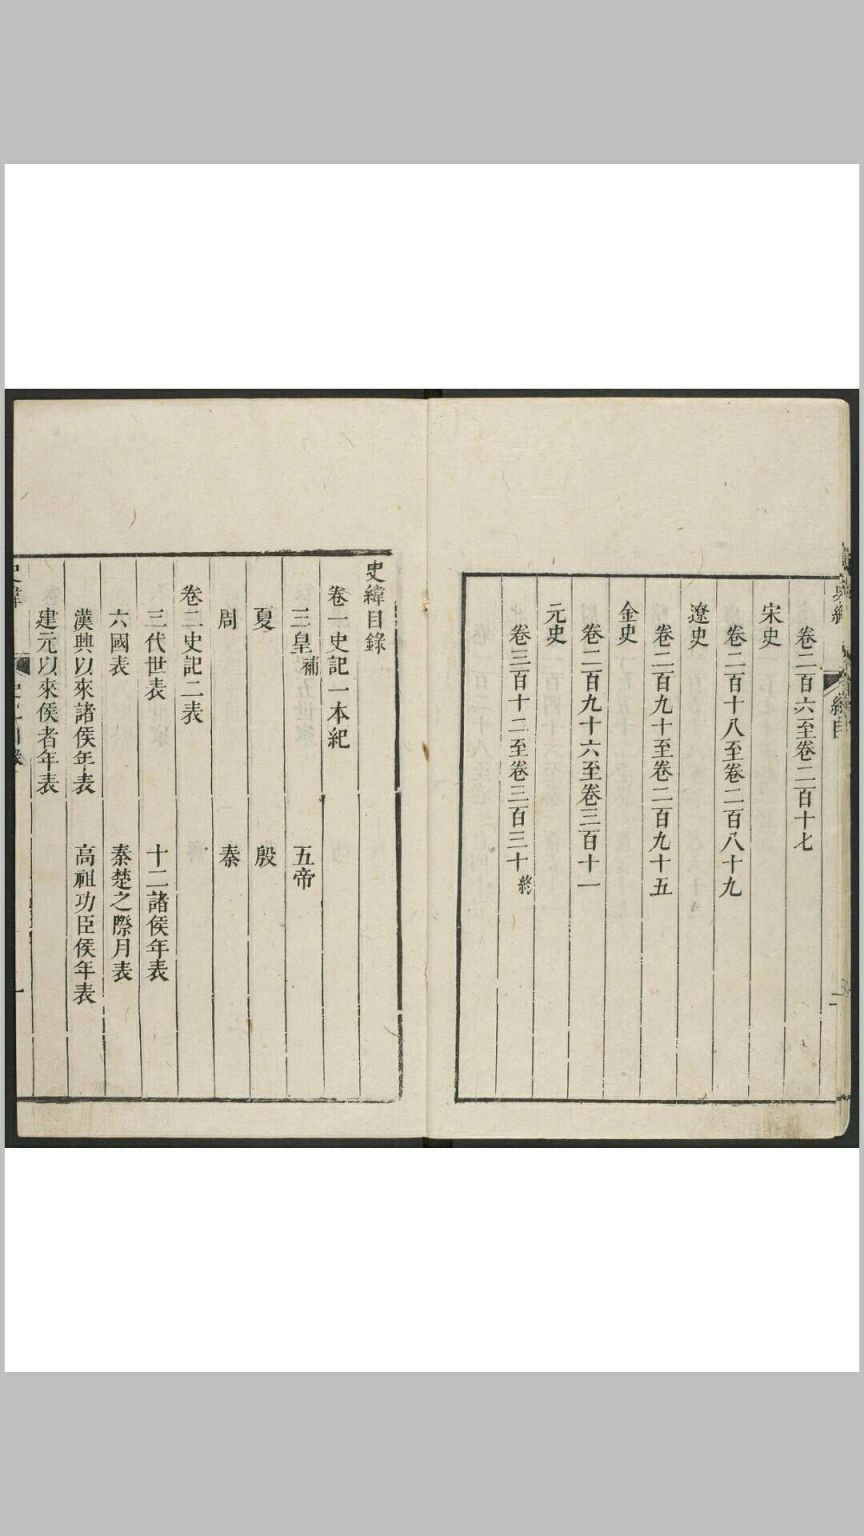 卷二百六至卷二百十七
宋史
卷二百十八至卷二百八十九
遼史
卷二百九十至卷二百九十五
金史
卷二百九十六至卷三百十一
元史
卷三百十二至卷三百三十終
史緯目錄
卷一史記一本紀
三皇補 五帝
夏 殷
周 秦
卷二史記二表
三代世表 十二諸侯年表
六國表 秦楚之際月表
漢興以來諸侯年表 高祖功臣侯年表
建元以來侯者年表